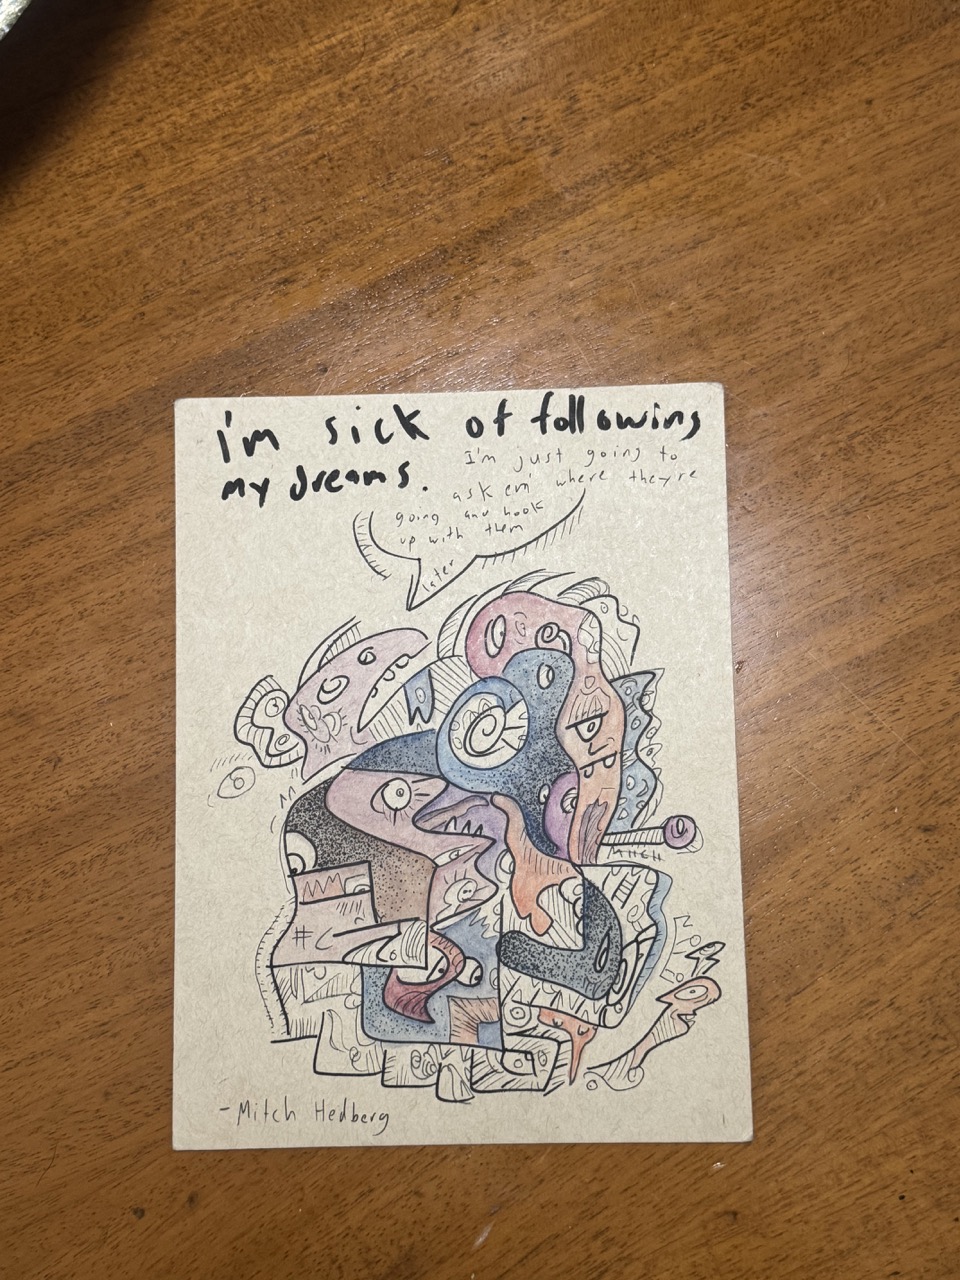 i'm sick of following
my dreams.
I'm just going to
ask em' where they're
going and hook
up with them
later
MITCH
#C
-Mitch Hedberg